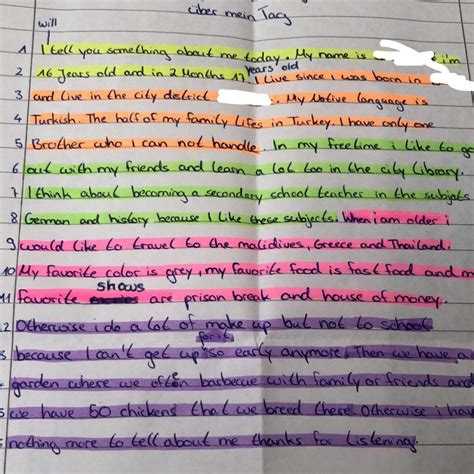 über mein Tag
will
1 I tell you something about me today. My name is i'm
2 16 years old and in 2 Months 17 years old I live since I was born in
3 and live in the city district . My Native language is
4 Turkish. The half of my family lifes in Turkey. I have only one
5 Brother who I can not handle. In my freetime I like to go
6 out with my friends and learn a lot too in the city library.
7 I think about becoming a secondary school teacher in the subjects
8 German and history because I like these subjects. When i am older i
9 would like to travel to the maldives, Greece and Thailand.
10 My favorite color is grey, my favorite food is fast food and
shows
11 favorite are prison break and house of money.
2 Otherwise i do a lot of make up but not to school
for it
3 because I can't get up so early anymore. Then we have a
garden where we often barbecue with family or friends and
5 we have 50 chickens that we breed there. Otherwise i have
nothing more to tell about me thanks for listening.